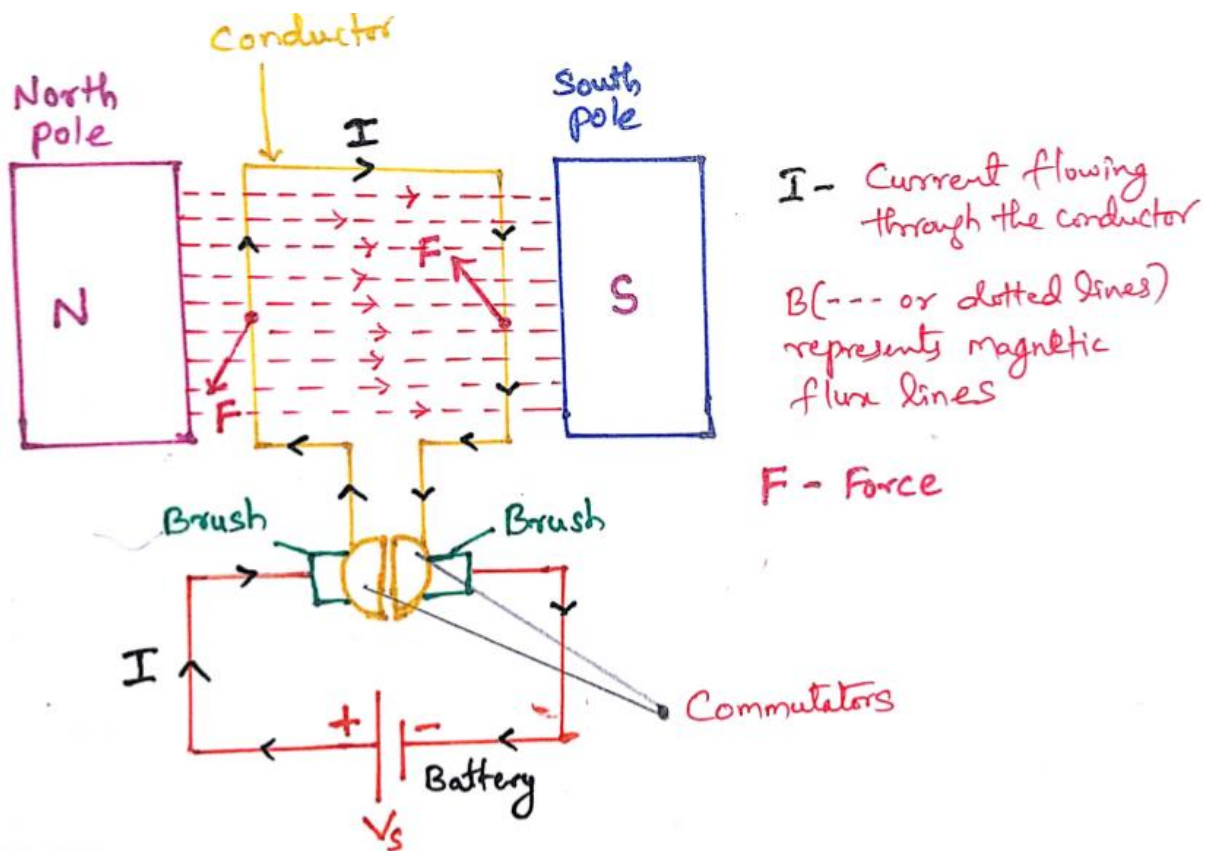 Conductor
North
pole
South
pole
I
N
F
F
S
I - Current flowing
through the conductor
B(--- or dotted lines)
represents magnetic
flux lines
F - Force
Brush
Brush
I
+
-
Battery
Vs
Commutators